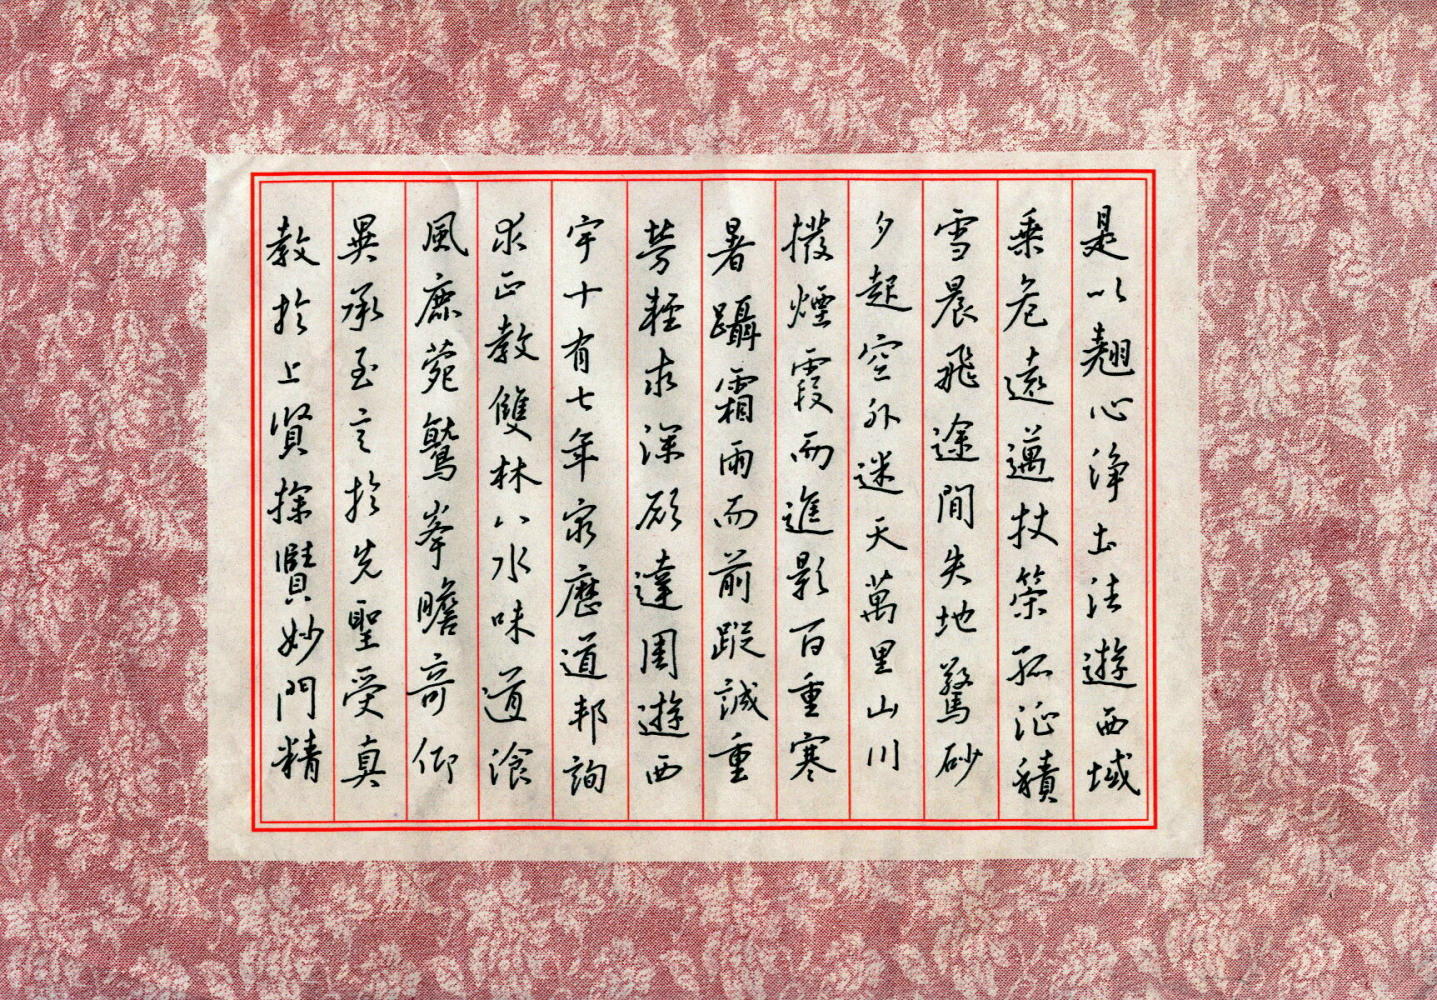 是以翹心淨土法遊西域
乗危遠邁杖策孤征積
雪晨飛途間失地驚砂
夕起空外迷天萬里山川
撥煙霞而進影百重寒
暑躡霜雨而前蹤誠重
勞輕求深願達周遊西
宇十有七年窮歷道邦詢
求正教雙林八水味道飡
風鹿菀鷲峯瞻奇仰
異承至言於先聖受真
教於上賢探賾妙門精